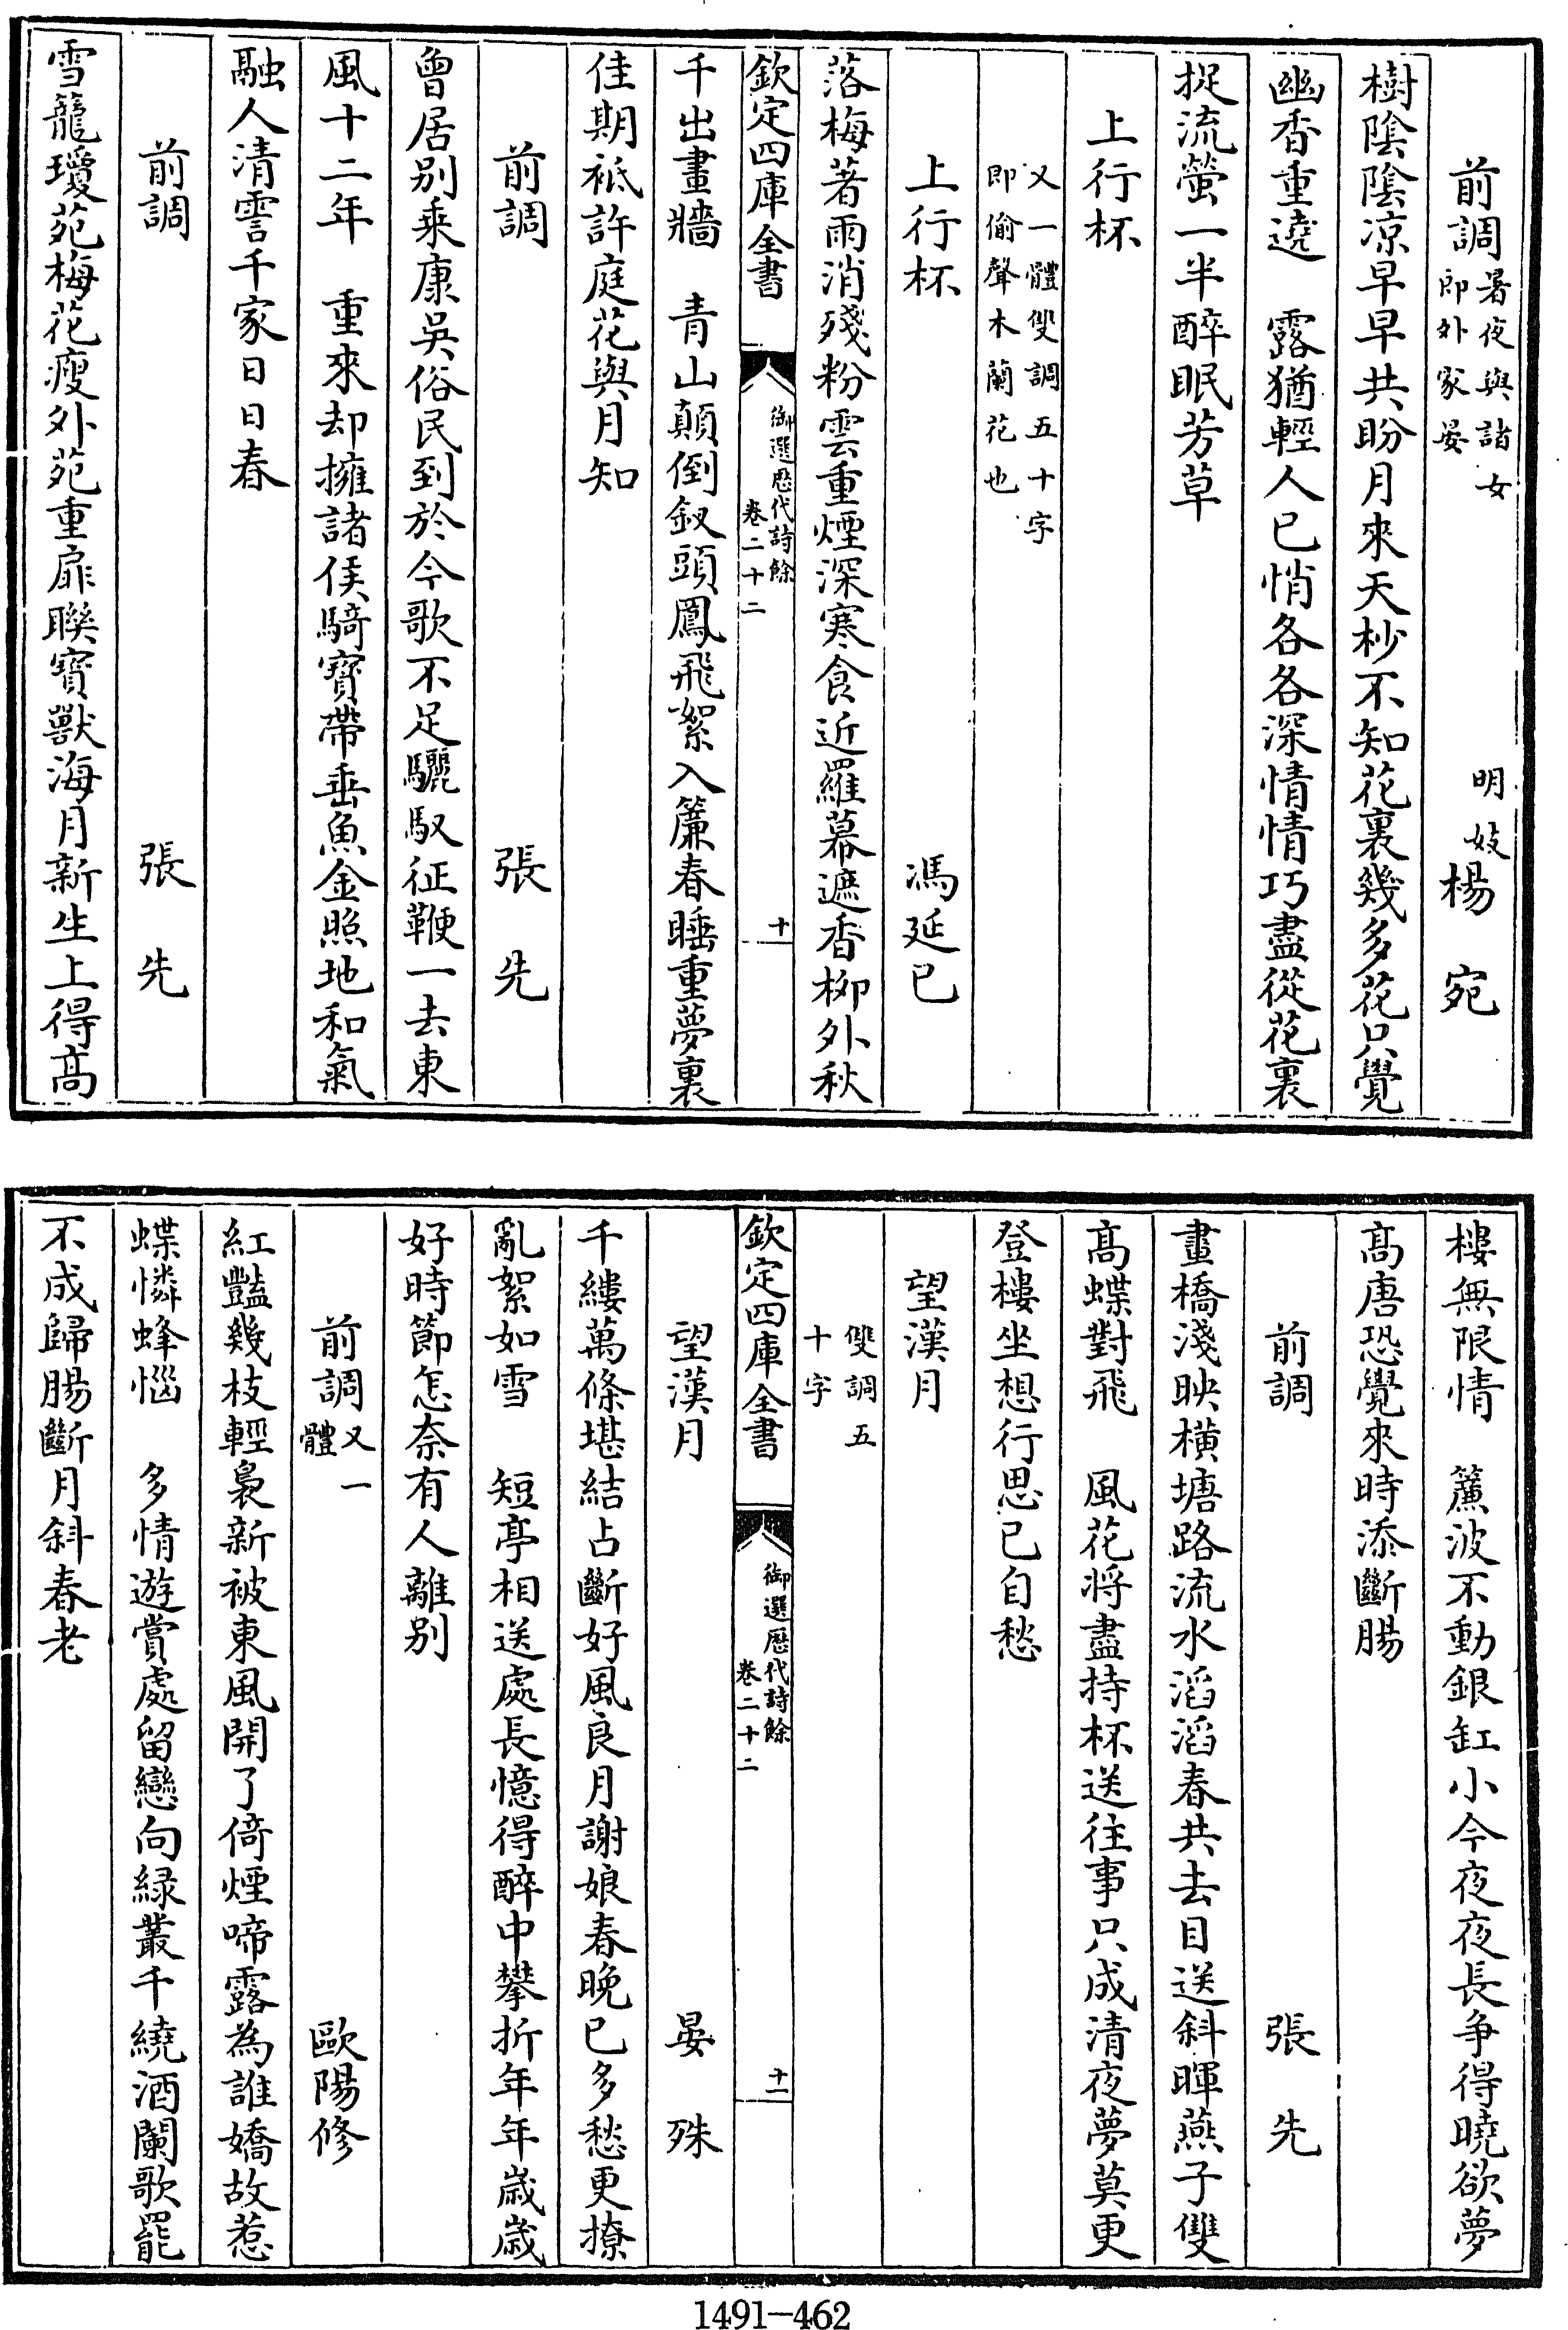 前調暑夜與諸女即外家晏　明妓楊宛
樹陰陰凉早早共盼月來天杪不知花裏幾多花只覺
幽香重遶　露猶輕人已悄各各深情情巧盡從花裏
捉流螢一半醉眠芳草
上行杯
又一體雙調五十字
即偷聲木蘭花也
上行杯　馮延已
落梅著雨消殘粉雲重煙深寒食近羅幕遮香柳外秋
欽定四庫全書　御選歷代詩餘卷二十二　十
千出畫牆　青山顛倒釵頭鳳飛絮入簾春睡重夢裏
佳期祗許庭花與月知
前調　張先
曾居别乘康吳俗民到於今歌不足驪馭征鞭一去東
風十二年　重來却擁諸侯騎寶帶垂魚金照地和氣
融人清霅千家日日春
前調　張先
雪籠瓊苑梅花瘦外苑重扉聯寶獸海月新生上得高
樓無限情　簾波不動銀缸小今夜夜長争得曉欲夢
高唐恐覺來時添斷腸
前調　張先
畫橋淺映横塘路流水滔滔春共去目送斜暉燕子雙
高蝶對飛　風花将盡持杯送往事只成清夜夢莫更
登樓坐想行思已自愁
望漢月
雙調五
十字
欽定四庫全書　御選歷代詩餘卷二十二　十一
望漢月　晏殊
千縷萬條堪結占斷好風良月謝娘春晚已多愁更撩
亂絮如雪　短亭相送處長憶得醉中攀折年年歲歲
好時節怎奈有人離别
前調又一體　歐陽修
紅豔幾枝輕裊新被東風開了倚煙啼露為誰嬌故惹
蝶憐蜂惱　多情遊賞處留戀向緑叢千繞酒闌歌罷
不成歸腸斷月斜春老
1491-462